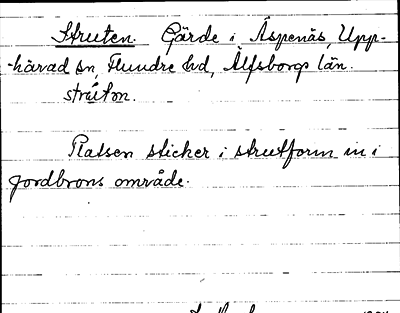 Struten. Gärde i Äspenäs, Upp-
-härad sn, Flundre hd, Älfsborgs län.
strúton.
Platsen sticker i strutform in i
Jordbrons område.